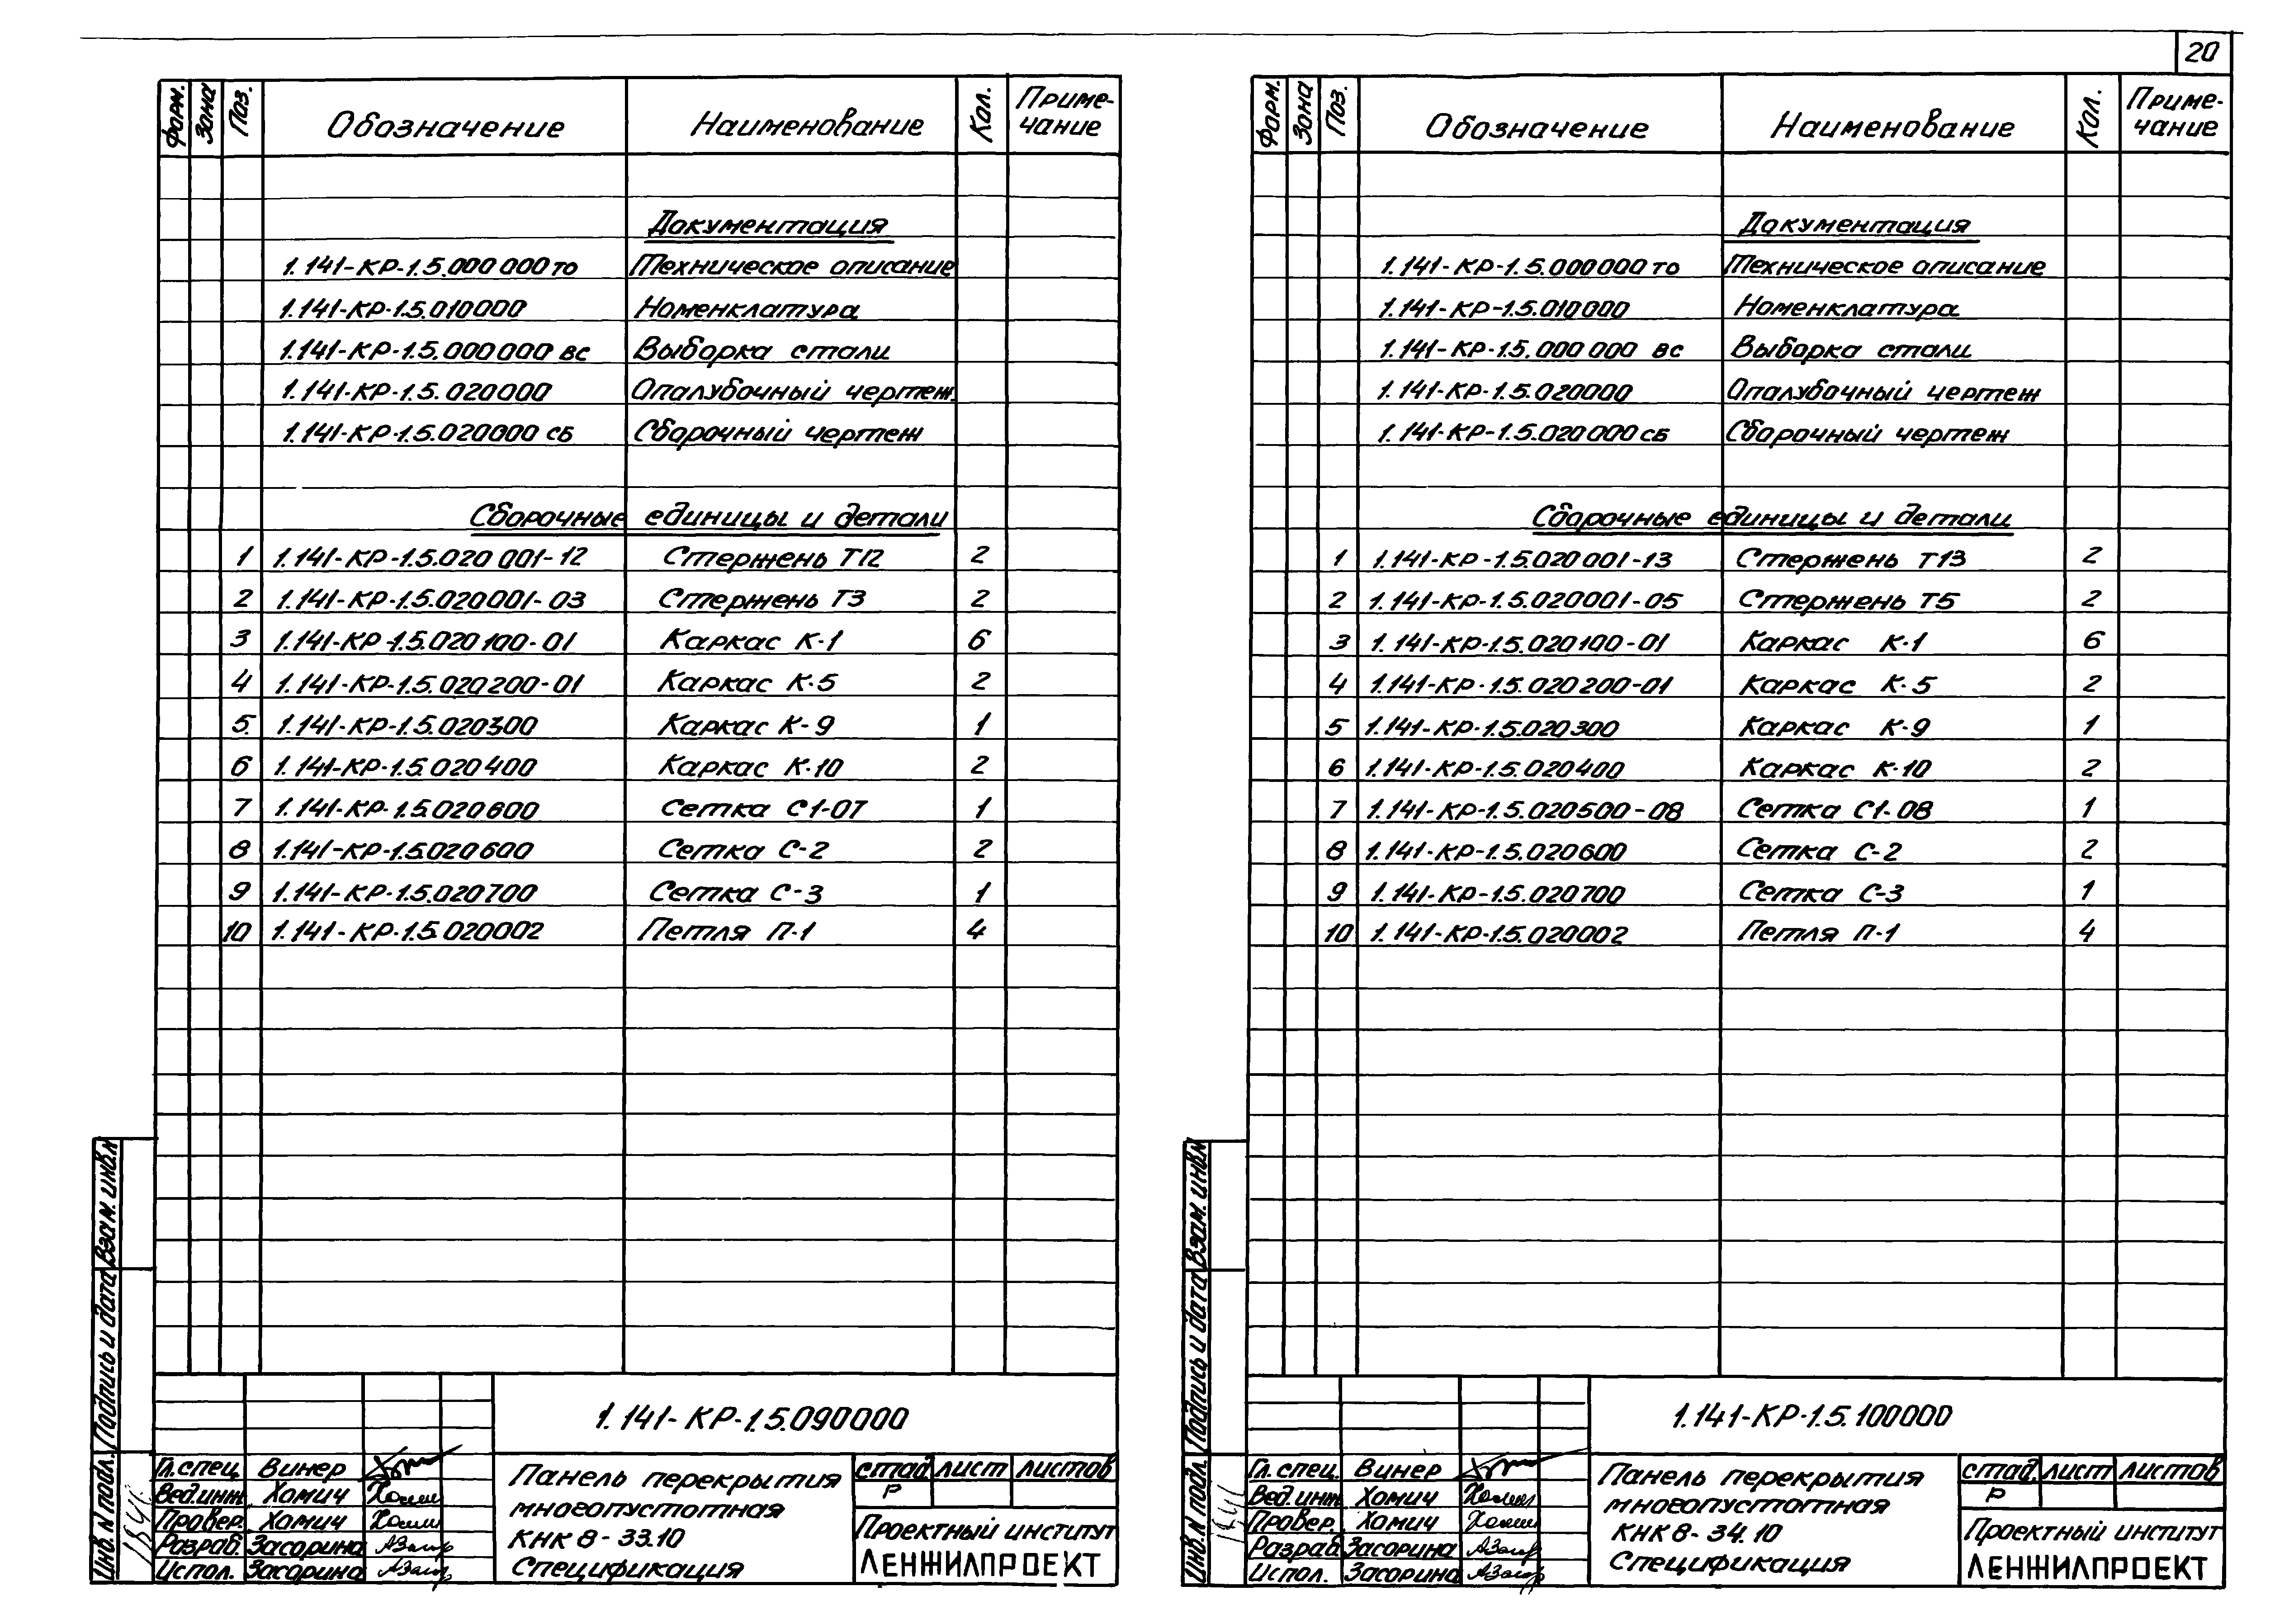 20
Форм.
Зона
Поз.
Обозначение
Наименование
Кол.
Приме-
чание
Документация
1.141-КР-1.5.000000 то Техническое описание
1.141-КР-1.5.010000 Номенклатура
1.141-КР-1.5.000000 вс Выборка стали
1.141-КР-1.5.020000 Опалубочный чертеж
1.141-КР-1.5.020000 сб Сборочный чертеж
Сборочные единицы и детали
1 1.141-КР-1.5.020 001-12 Стержень Т12 2
2 1.141-КР-1.5.020001-03 Стержень Т3 2
3 1.141-КР-1.5.020100-01 Каркас К-1 6
4 1.141-КР-1.5.020200-01 Каркас К-5 2
5. 1.141-КР-1.5.020300 Каркас К-9 1
6 1.141-КР-1.5.020400 Каркас К-10 2
7 1.141-КР-1.5.020600 Сетка С1-07 1
8 1.141-КР-1.5.020600 Сетка С-2 2
9 1.141-КР-1.5.020700 Сетка С-3 1
10 1.141-КР-1.5.020002 Петля П-1 4
Взам. инв.N
Подпись и дата
Инв. N подл.
1.141-КР-1.5.090000
Гл. спец. Винер
Вед.инж. Хомич
Провер. Хомич
Разраб. Засорина
Испол. Засорина
Панель перекрытия
многопустотная
КНК 8-33.10
Спецификация
стад лист листов
Р
Проектный институт
ЛЕНЖИЛПРОЕКТ
Форм.
Зона
Поз.
Обозначение
Наименование
Кол.
Приме-
чание
Документация
1.141-КР-1.5.000000 то Техническое описание
1.141-КР-1.5.010000 Номенклатура
1.141-КР-1.5.000000 вс Выборка стали
1.141-КР-1.5.020000 Опалубочный чертеж
1.141-КР-1.5.020000 сб Сборочный чертеж
Сборочные единицы и детали
1 1.141-КР-1.5.020001-13 Стержень Т13 2
2 1.141-КР-1.5.020001-05 Стержень Т5 2
3 1.141-КР-1.5.020100-01 Каркас К-1 6
4 1.141-КР-1.5.020200-01 Каркас К-5 2
5 1.141-КР-1.5.020300 Каркас К-9 1
6 1.141-КР-1.5.020400 Каркас К-10 2
7 1.141-КР-1.5.020500-08 Сетка С1-08 1
8 1.141-КР-1.5.020600 Сетка С-2 2
9 1.141-КР-1.5.020700 Сетка С-3 1
10 1.141-КР-1.5.020002 Петля П-1 4
Взам. инв.N
Подпись и дата
Инв. N подл.
1.141-КР-1.5.100000
Гл. спец. Винер
Вед.инж Хомич
Провер. Хомич
Разраб Засорина
Испол. Засорина
Панель перекрытия
многопустотная
КНК 8-34.10
Спецификация
стад лист листов
Р
Проектный институт
ЛЕНЖИЛПРОЕКТ